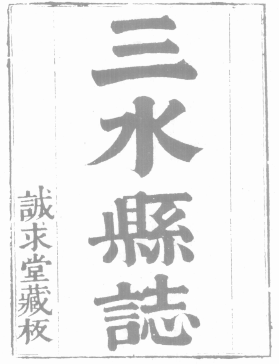 三水縣誌
誠求堂藏板